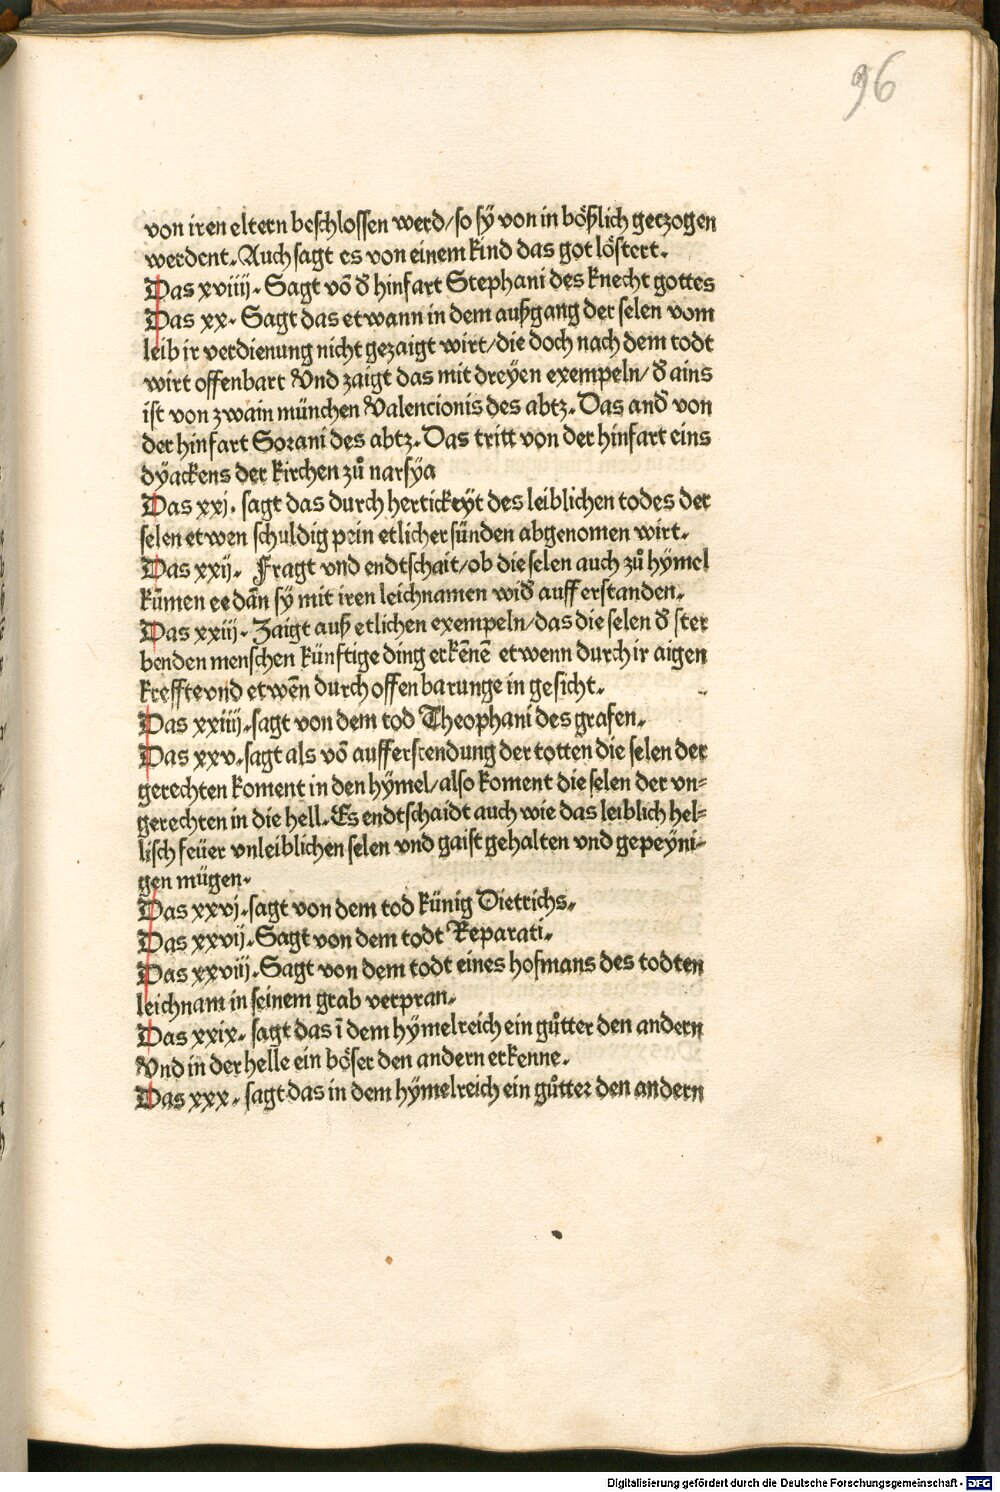 96
von iren eltern beschlossen werd/so sÿ von in bößlich geczogen
werdent. Auch sagt es von einem kind das got löstert.
Das xviiij. Sagt võ d̕ hinfart Stephani des knecht gottes
Das xx. Sagt das etwann in dem außgang der selen vom
leib ir verdienung nicht gezaigt wirt/die doch nach dem todt
wirt offenbart Vnd zaigt das mit dreÿen exempeln/d̕ ains
ist von zwain münchen Valencionis des abtz. Das and̕ von
der hinfart Sorani des abtz. Das tritt von der hinfart eins
dÿackens der kirchen zů narsÿa
Das xxj. sagt das durch hertickeÿt des leiblichen todes der
selen etwen schuldig pein etlicher sünden abgenomen wirt.
Das xxij. Fragt vnd endtschait/ob die selen auch zů hÿmel
kũmen ee dãn sÿ mit iren leichnamen wid̕ aufferstanden.
Das xxiij. Zaigt auß etlichen exempeln/das die selen d̕ ster
benden menschen künftige ding erkẽnẽ etwenn durch ir aigen
krefftevnd etwẽn durch offenbarunge in gesicht.
Das xxiiij. sagt von dem tod Theophani des grafen.
Das xxv. sagt als võ aufferstendung der totten die selen der
gerechten koment in den hÿmel/also koment die selen der vn=
gerechten in die hell. Es endtschaidt auch wie das leiblich hel=
lisch feüer vnleiblichen selen vnd gaist gehalten vnd gepeÿni=
gen mügen.
Das xxvj. sagt von dem tod künig Dietrichs.
Das xxvij. Sagt von dem todt Reparati.
Das xxviij. Sagt von dem todt eines hofmans des todten
leichnam in seinem grab verpran.
Das xxix. sagt das ĩ dem hÿmelreich ein gůtter den andern
Vnd in der helle ein böser den andern erkenne.
Das xxx. sagt das in dem hÿmelreich ein gůtter den andern
Digitalisierung gefördert durch die Deutsche Forschungsgemeinschaft - DFG